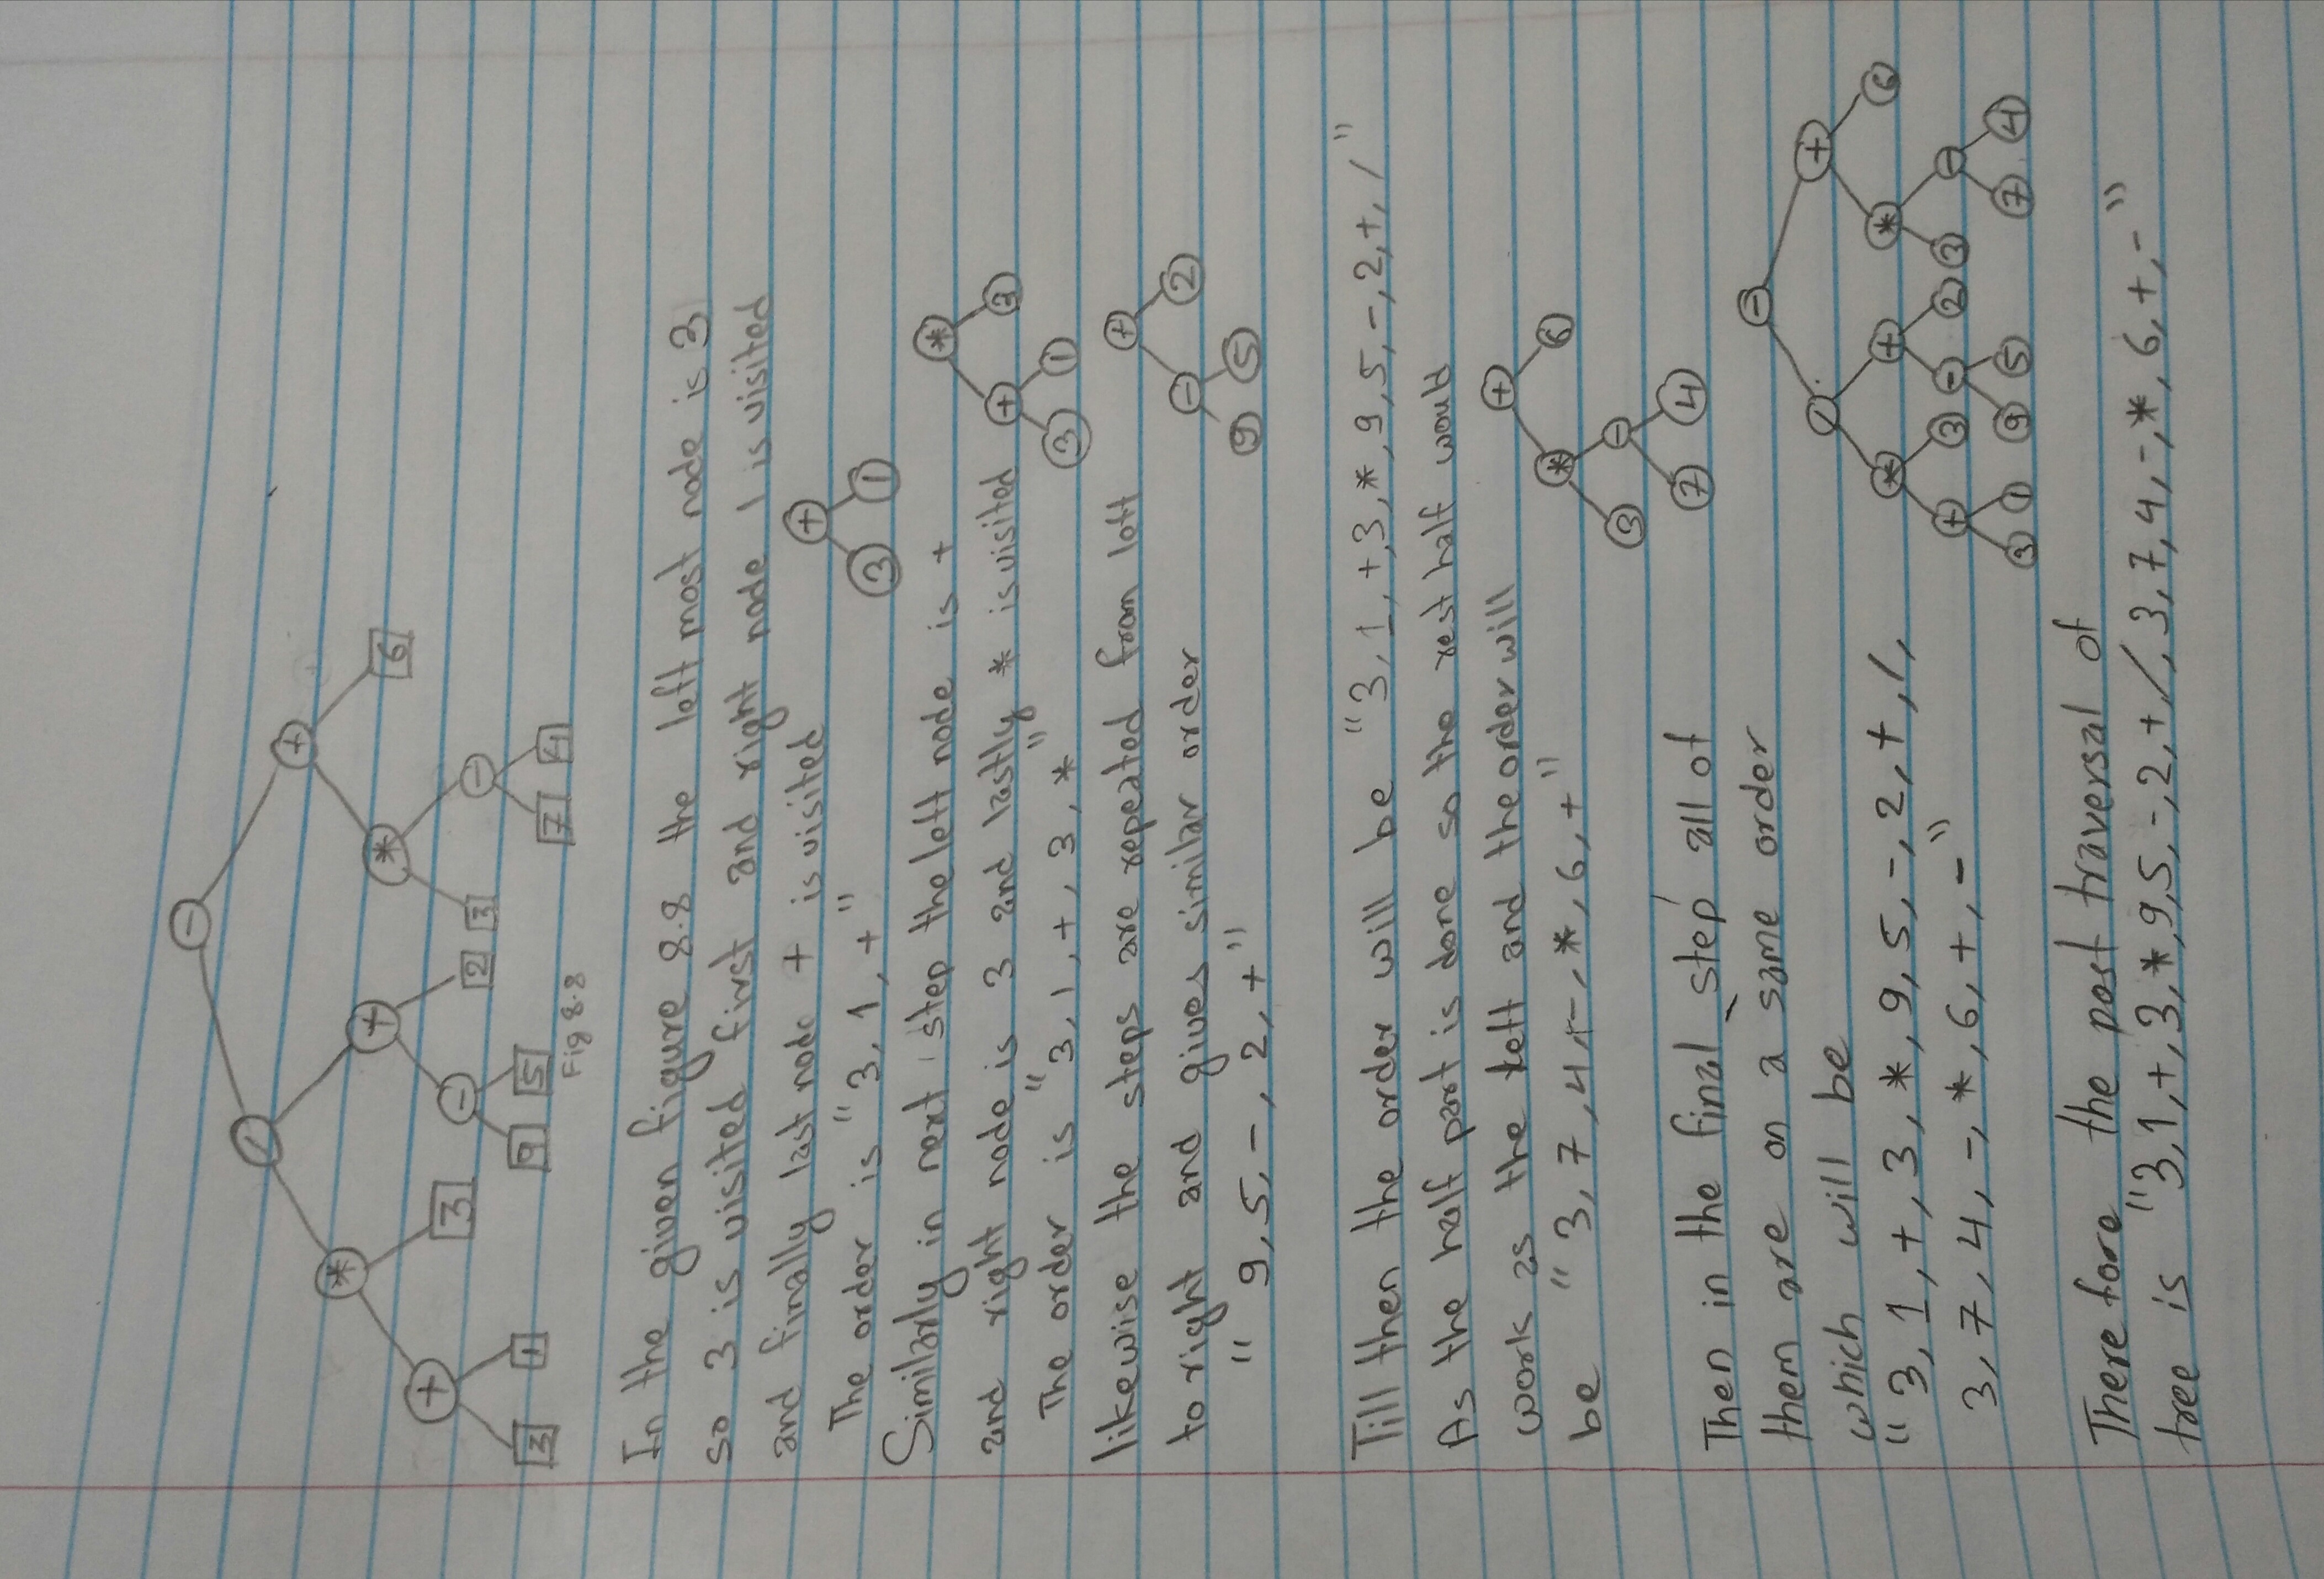 -
/
+
*
+
*
6
+
3
-
2
3
-
3
1
9
5
7
4
Fig 8.8
In the given figure 8.8 the left most node is 3
so 3 is visited first and right node 1 is visited
and finally last node + is visited
+
The order is "3, 1, +"
3 1
Similarly in next step the left node is +
*
and right node is 3 and lastly * is visited
+ 3
The order is "3, 1, +, 3, *"
3 1
likewise the steps are repeated from left
+
to right and gives similar order
- 2
" 9, 5, -, 2, +"
9 5
Till then the order will be "3, 1, +, 3, *, 9, 5, -, 2, +, /"
As the half part is done so the rest half would
work as the left and the order will
+
be "3, 7, 4, -, *, 6, +"
* 6
3 -
7 4
Then in the final step all of
them are on a same order
-
which will be
/ +
"3, 1, +, 3, *, 9, 5, -, 2, +, /,
* + * 6
3, 7, 4, -, *, 6, +, -"
+ 3 - 2 3 -
3 1 9 5 7 4
Therefore the post traversal of
tree is "3,1,+,3,*,9,5,-,2,+,/,3,7,4,-,*,6,+,-"